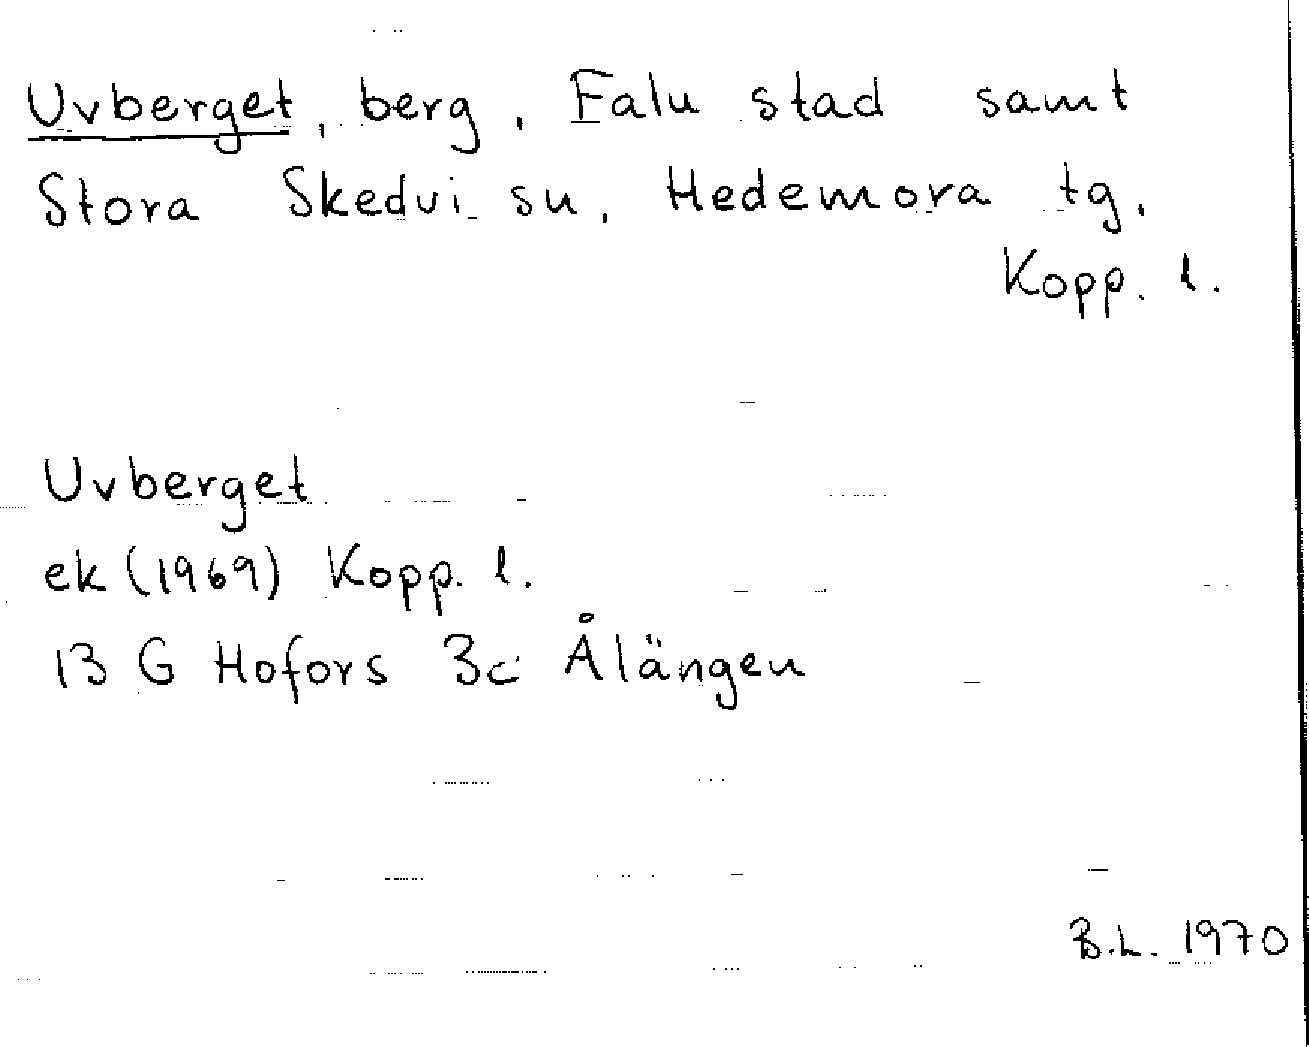 Uvberget, berg, Falu stad samt
Stora Skedvi sn, Hedemora tg,
Kopp. l.
Uvberget
ek (1969) Kopp. l.
13 G Hofors 3c Ålängen
B.L. 1970